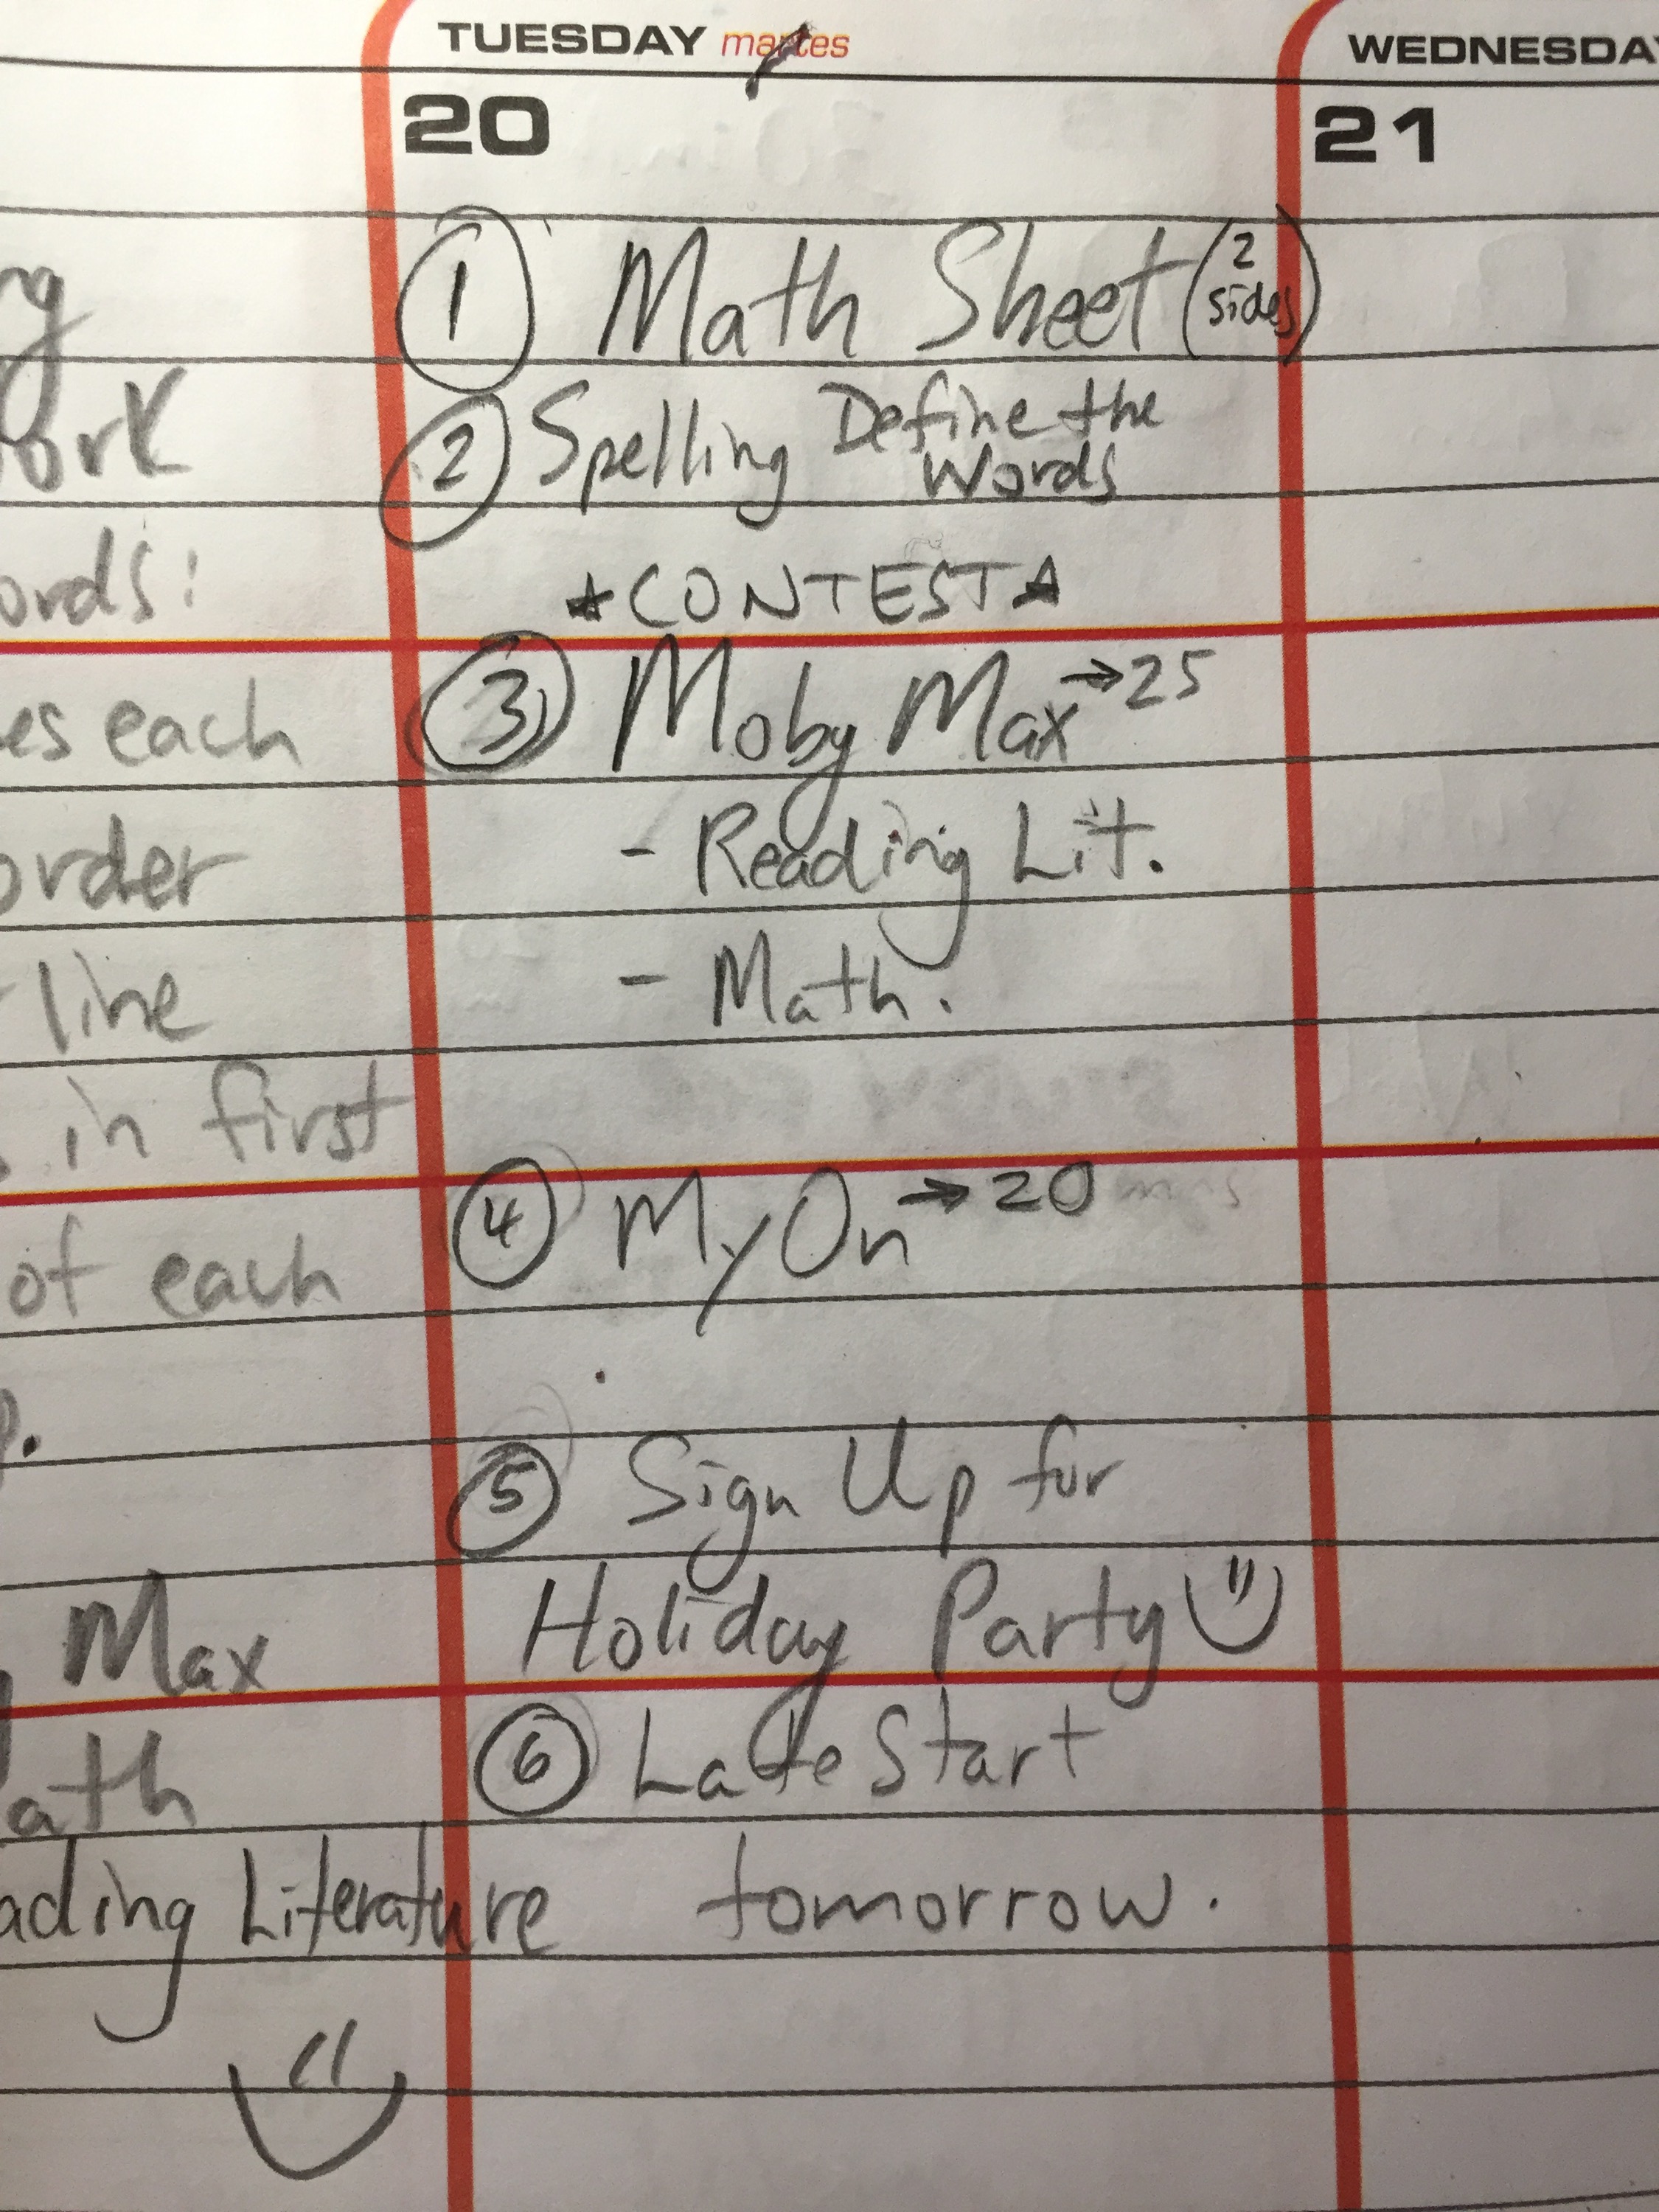 TUESDAY martes
WEDNESDAY
20
21
1 Math Sheet (2 sides)
2 Spelling Define the
Words
★CONTEST★
3 Moby Max→25
- Reading Lit.
- Math.
4 MyOn→20
5 Sign Up for
Holiday Party
6 Late Start
tomorrow.
ords:
es each
order
line
in first
of each
Max
ath
ading Literature